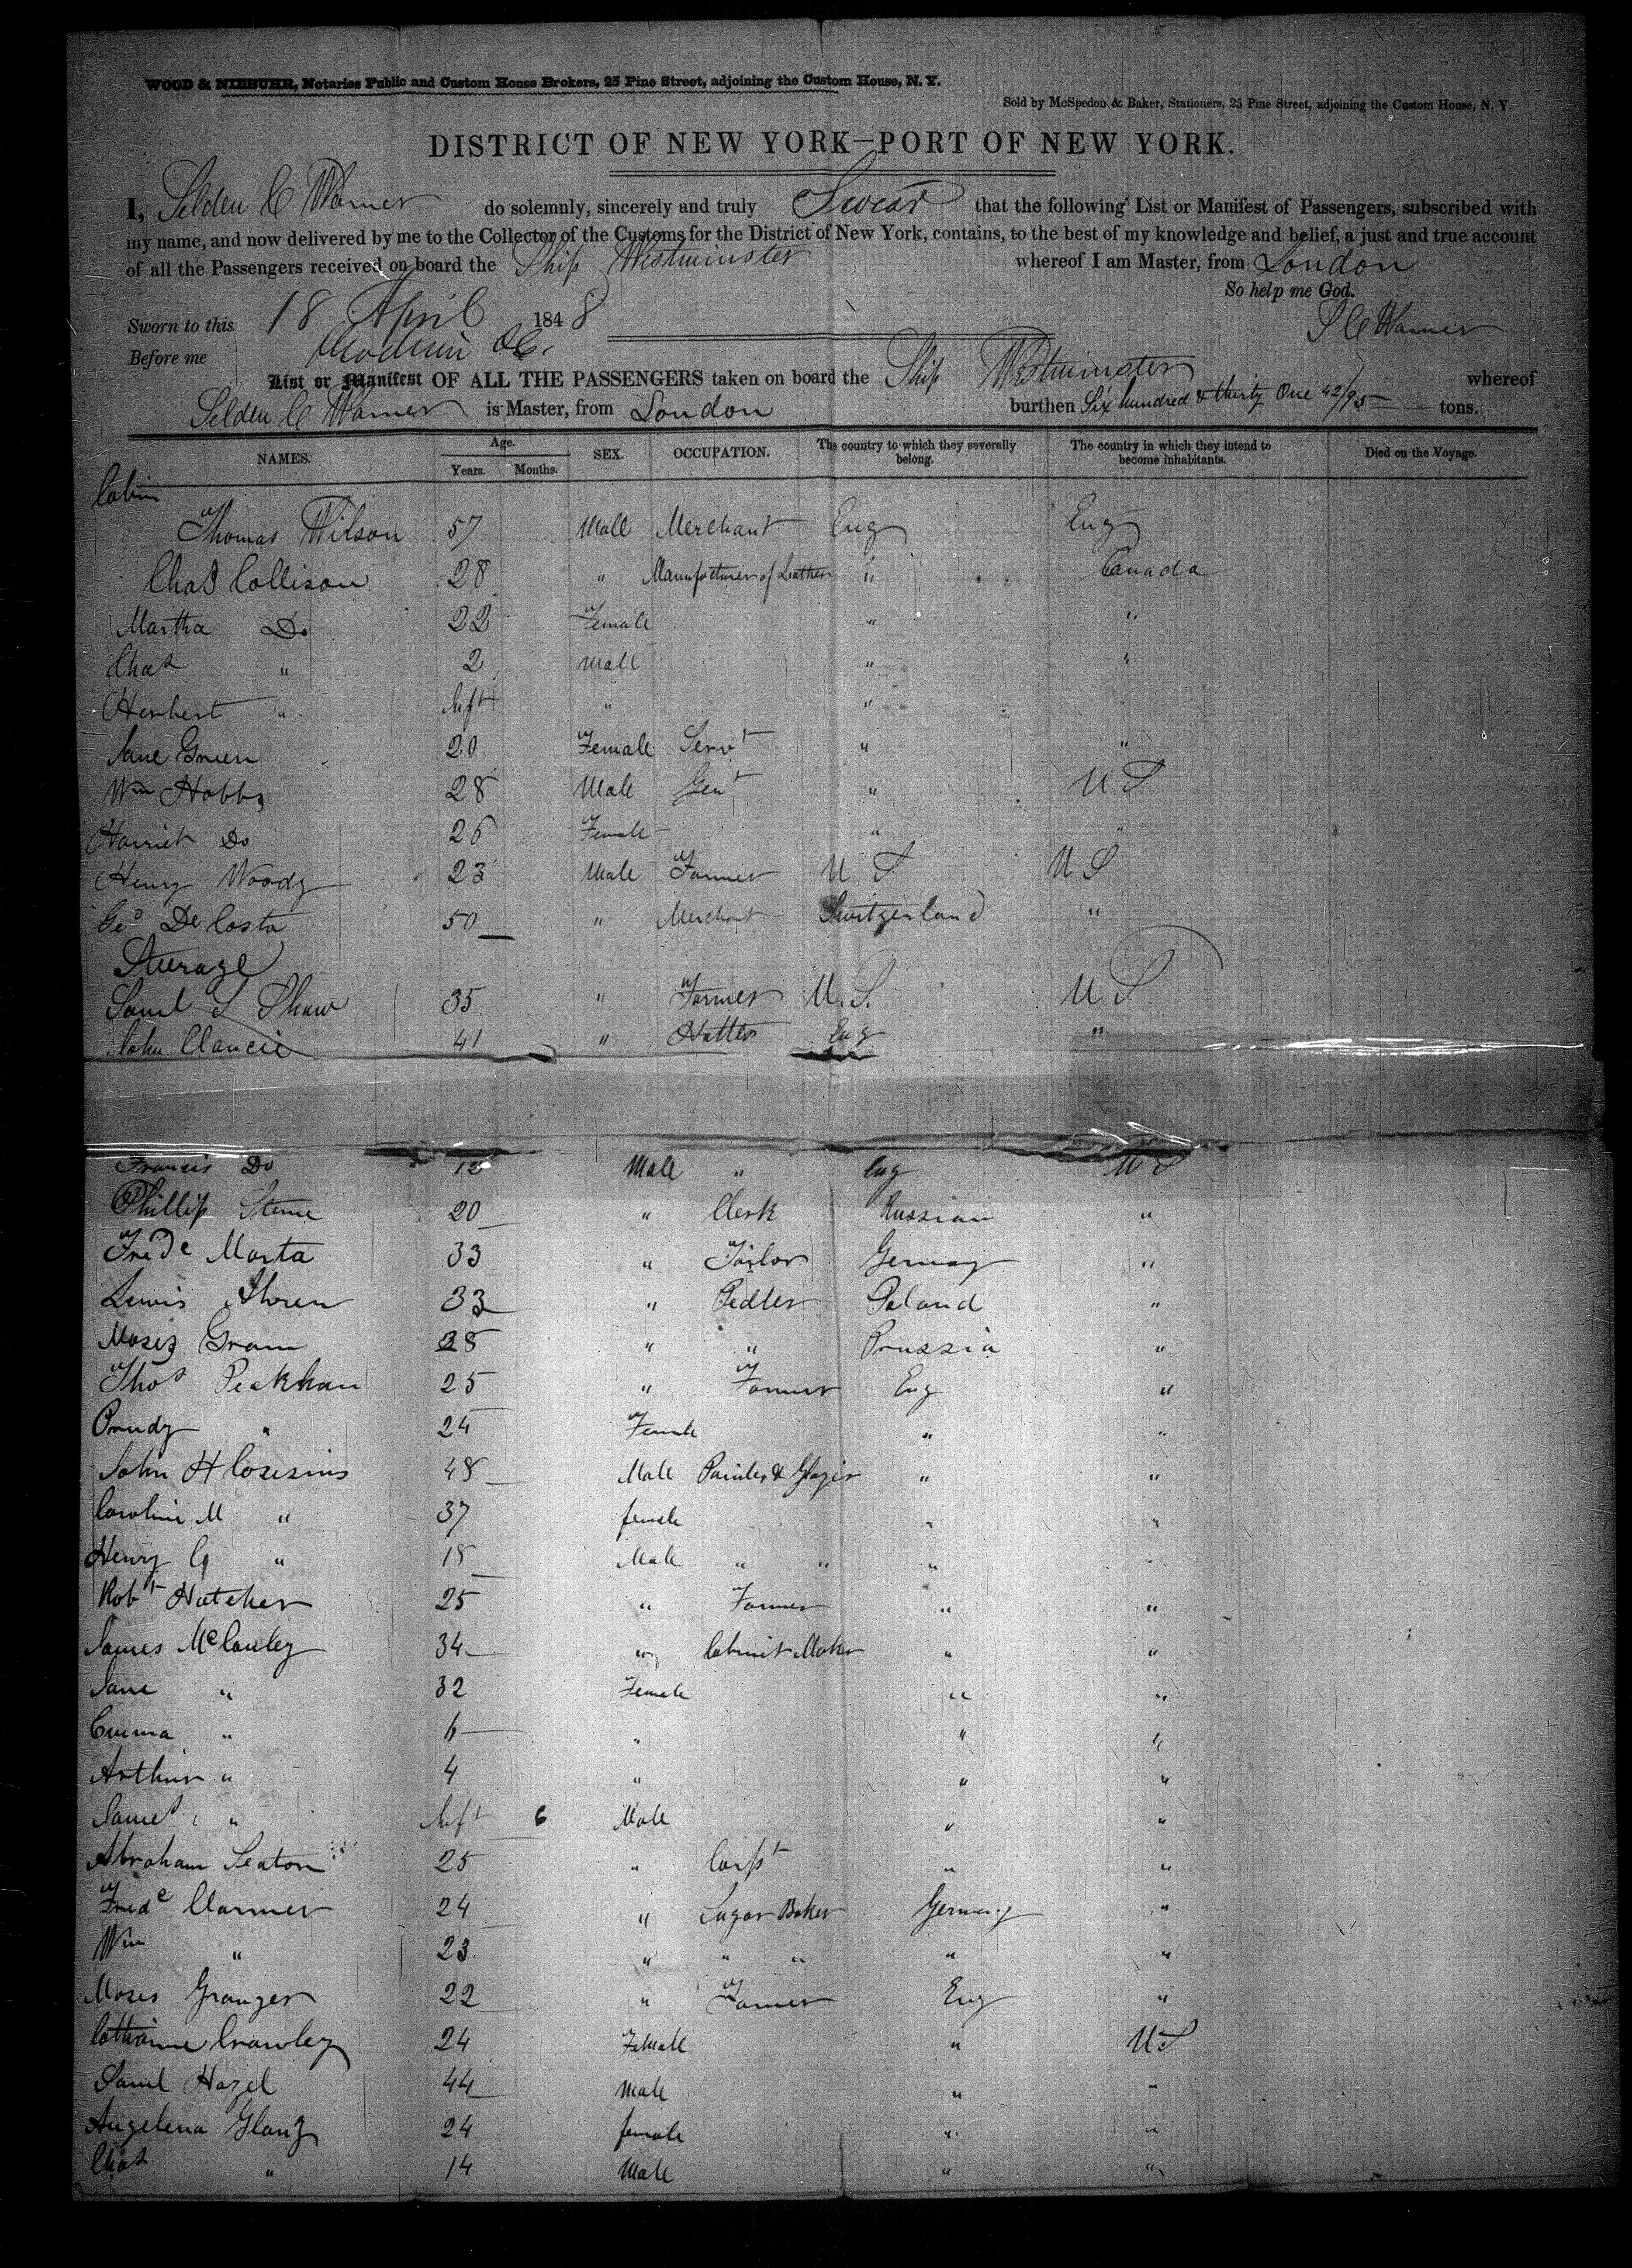 WOOD & NIEBUHR, Notaries Public and Custom House Brokers, 25 Pine Street, adjoining the Custom House, N. Y.
Sold by McSpedon & Baker, Stationers, 25 Pine Street, adjoining the Custom House, N. Y.
DISTRICT OF NEW YORK—PORT OF NEW YORK.
I, Selden C Warner do solemnly, sincerely and truly Swear that the following List or Manifest of Passengers, subscribed with
my name, and now delivered by me to the Collector of the Customs for the District of New York, contains, to the best of my knowledge and belief, a just and true account
of all the Passengers received on board the Ship Westminster whereof I am Master, from London
So help me God.
Sworn to this 18 April 1848 S C Warner
Before me
List or Manifest OF ALL THE PASSENGERS taken on board the Ship Westminster whereof
Selden C Warner is Master, from London burthen Six hundred & thirty One 42/95 tons.
NAMES. Age. Years. Months. SEX. OCCUPATION. The country to which they severally belong. The country in which they intend to become inhabitants. Died on the Voyage.
Cabin
Thomas Wilson 57 Male Merchant Eng Eng
Chas Collison 28 " Manufacturer of Leather " Canada
Martha Do 22 Female " "
Chas " 2 Male " "
Herbert " Inft " "
Jane Green 20 Female Servt " "
Wm Hobbs 28 Male Gent " U S
Harriet Do 26 Female " "
Henry Woody 23 Male Farmer U S U S
Geo De Costa 50 " Merchant Switzerland "
Steerage
Saml S Shaw 35 " Farmer U.S. U S
John Clancie 41 " Hatter Eng "
Francis Do 12 Male " Eng U S
Phillip Sterne 20 " Clerk Russian "
Fredc Marta 33 " Tailor Germany "
Lewis 33 " Pedler Poland "
Moses Gram 28 " " Prussia "
Thos Peckham 25 " Farmer Eng "
Prudy " 24 Female " "
John H Cossins 48 Male Painter & Glazier " "
Caroline M " 37 female " "
Henry G " 18 Male " " " "
Robt Hatcher 25 " Farmer " "
James McCauley 34 " Cabinet Maker " "
Jane " 32 Female " "
Emma " 6 " " "
Arthur " 4 " " "
James " Inft 6 Male " "
Abraham Seaton 25 " Carpt " "
Fredc Clarmer 24 " Sugar Baker Germany "
Wm " 23 " " " " "
Moses Granger 22 " Farmer Eng "
Catharine Crawley 24 Female " U S
Saml Hazel 44 Male " "
Angelena Glanz 24 female " "
Chas " 14 Male " "